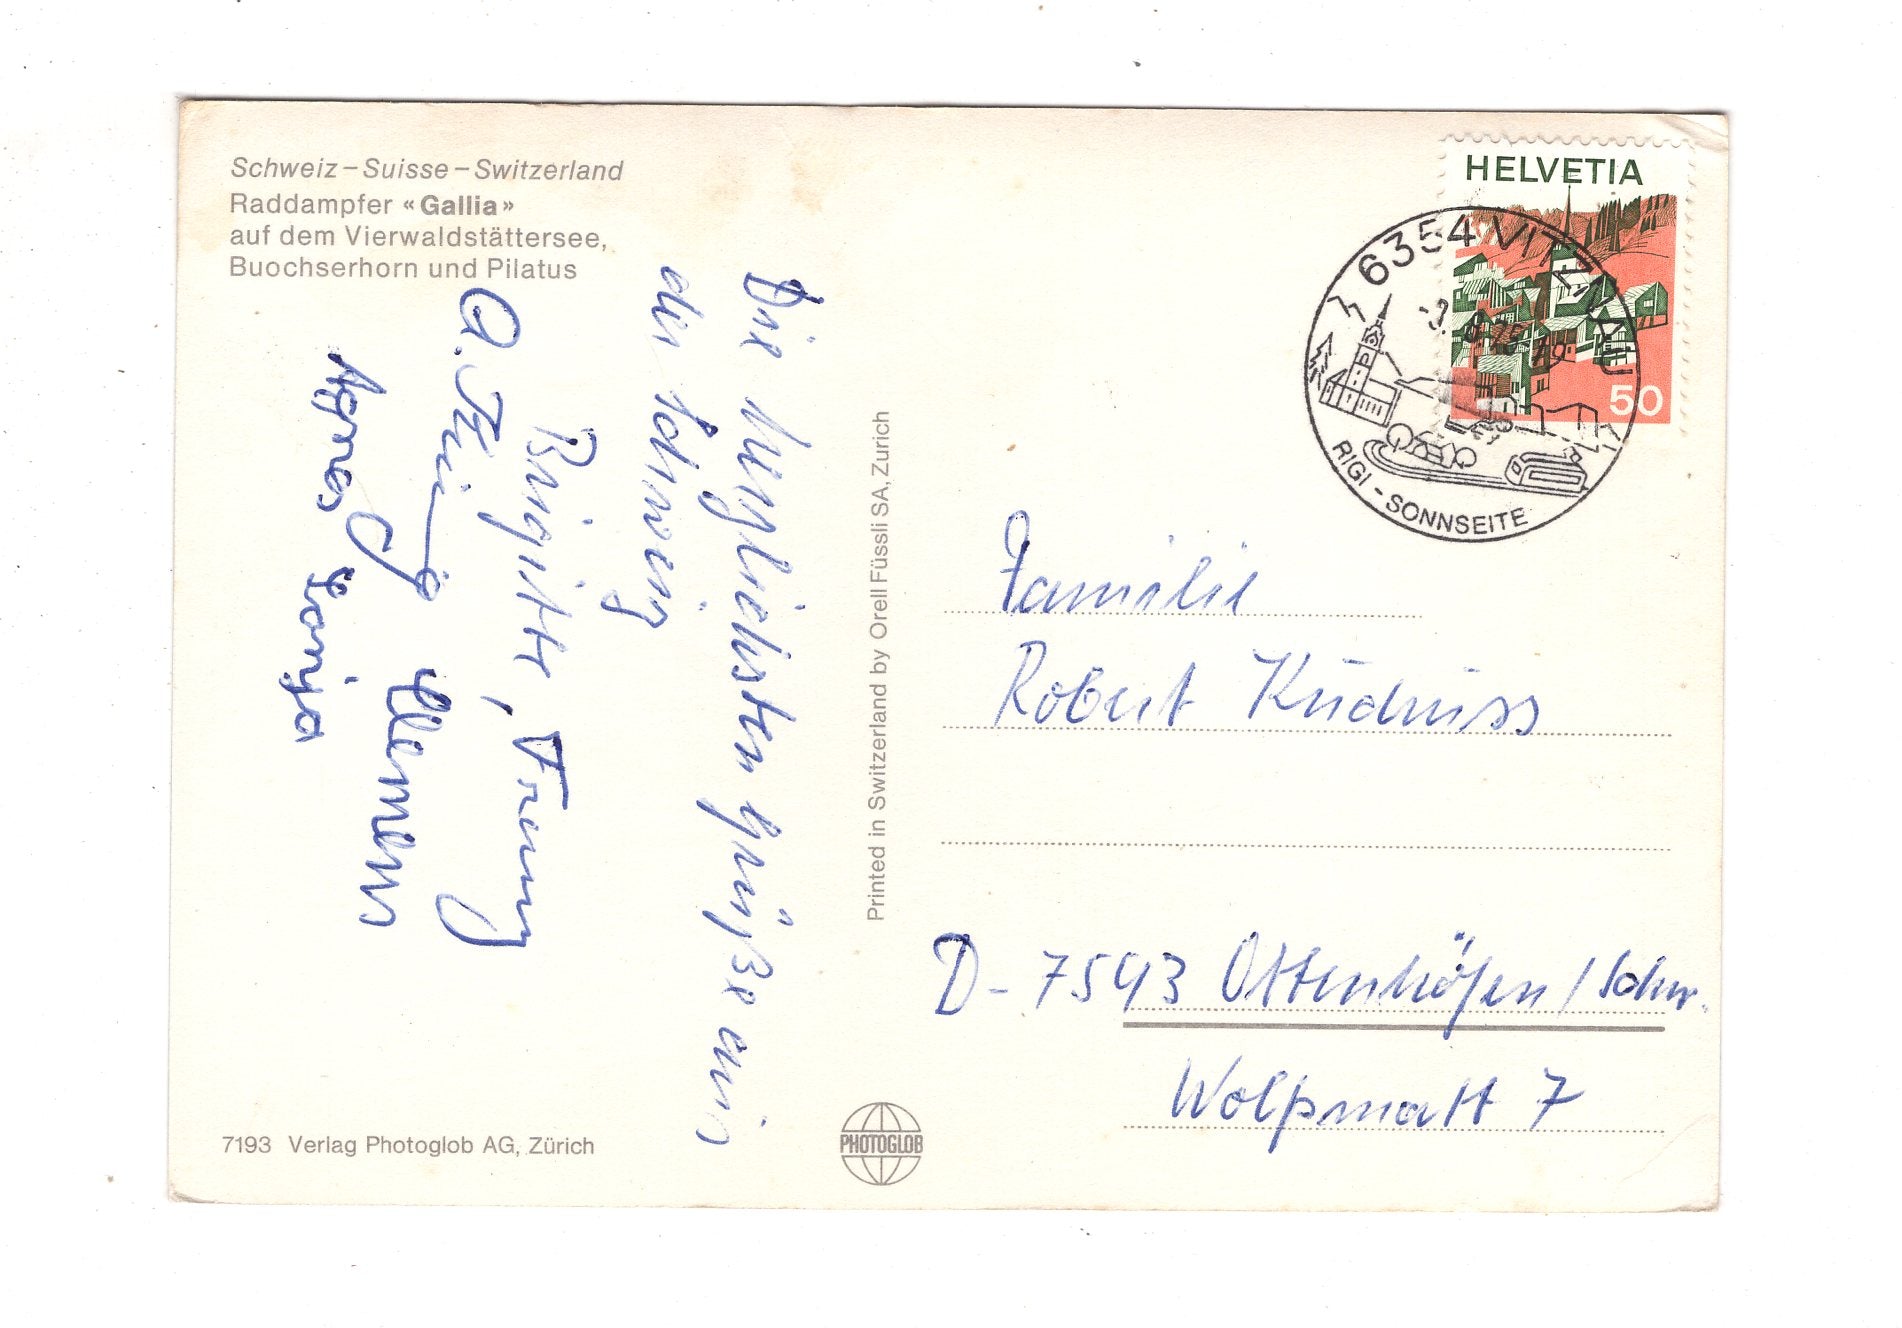 Schweiz – Suisse – Switzerland
Raddampfer «Gallia»
auf dem Vierwaldstättersee,
Buochserhorn und Pilatus
Die herzlichsten Grüße aus
der Schweiz
Brigitte, Franz
A.
Clemens
Agnes Sonja
7193 Verlag Photoglob AG, Zürich
Printed in Switzerland by Orell Füssli SA, Zürich
PHOTOGLOB
HELVETIA
50
6354 VITZNAU
RIGI - SONNSEITE
Familie
Robert
D-7593 Ottenhöfen / Schw.
Wolfsmatt 7